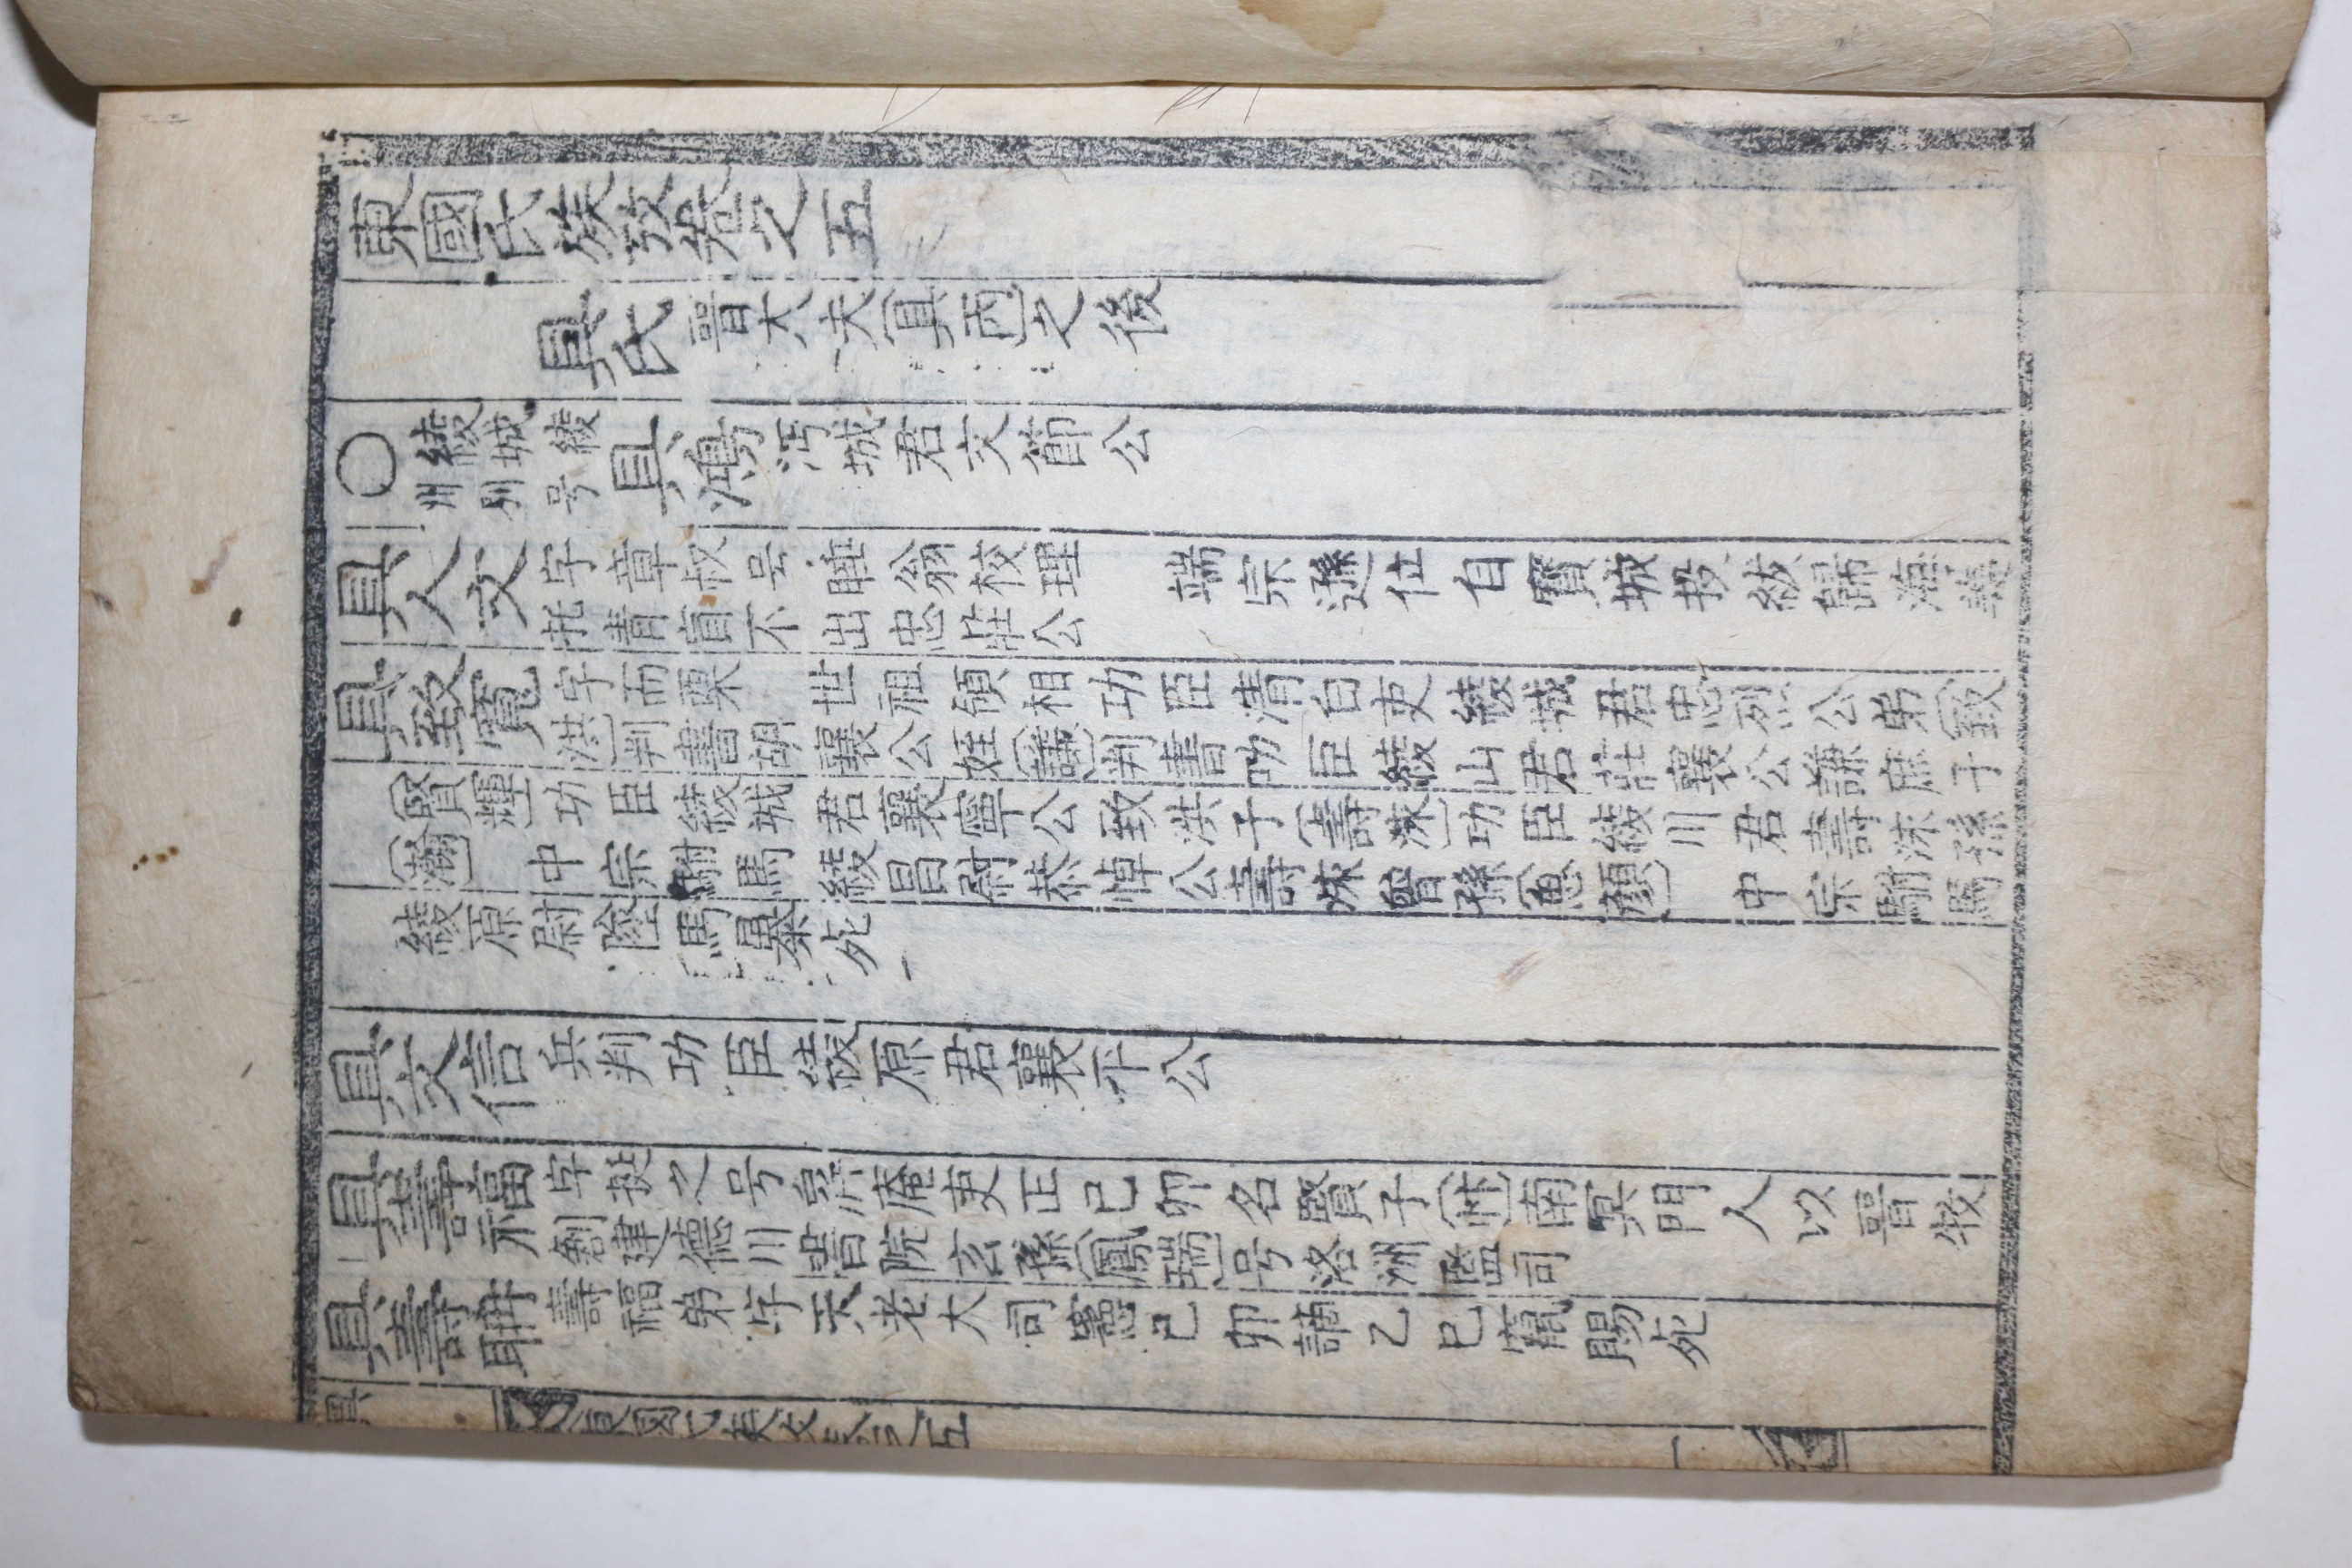 東國氏族攷卷之五
具氏 晋大夫〔具丙〕之後
〇 綾城綾
州別号
具鴻 沔城君文節公
具人文 字章叔号睡翁校理 端宗遜位自寶城投紱歸海美
托青盲不出忠莊公
具致寬 字而栗 世祖領相功臣清白吏綾城君忠烈公弟〔致
洪〕判書胡襄公姪〔謙〕判書功臣綾山君莊襄公謙庶子
〔賢輝〕功臣綾城君襄寧公致洪子〔壽〕功臣綾川君壽孫
〔瀚〕 中宗駙馬綾昌尉恭悼公壽曾孫〔思顔〕 中宗駙馬
綾原尉墜馬暴死
具文信 兵判功臣綾原君襄平公
具壽福 字挺之号屛庵吏正己卯名賢子〔忭〕南冥門人以晋牧
創建德川書院玄孫〔鳳瑞〕号洛洲監司
具壽聃 壽福弟字天老大司憲己卯謫乙巳竄賜死
具
東國氏族攷卷之五
一